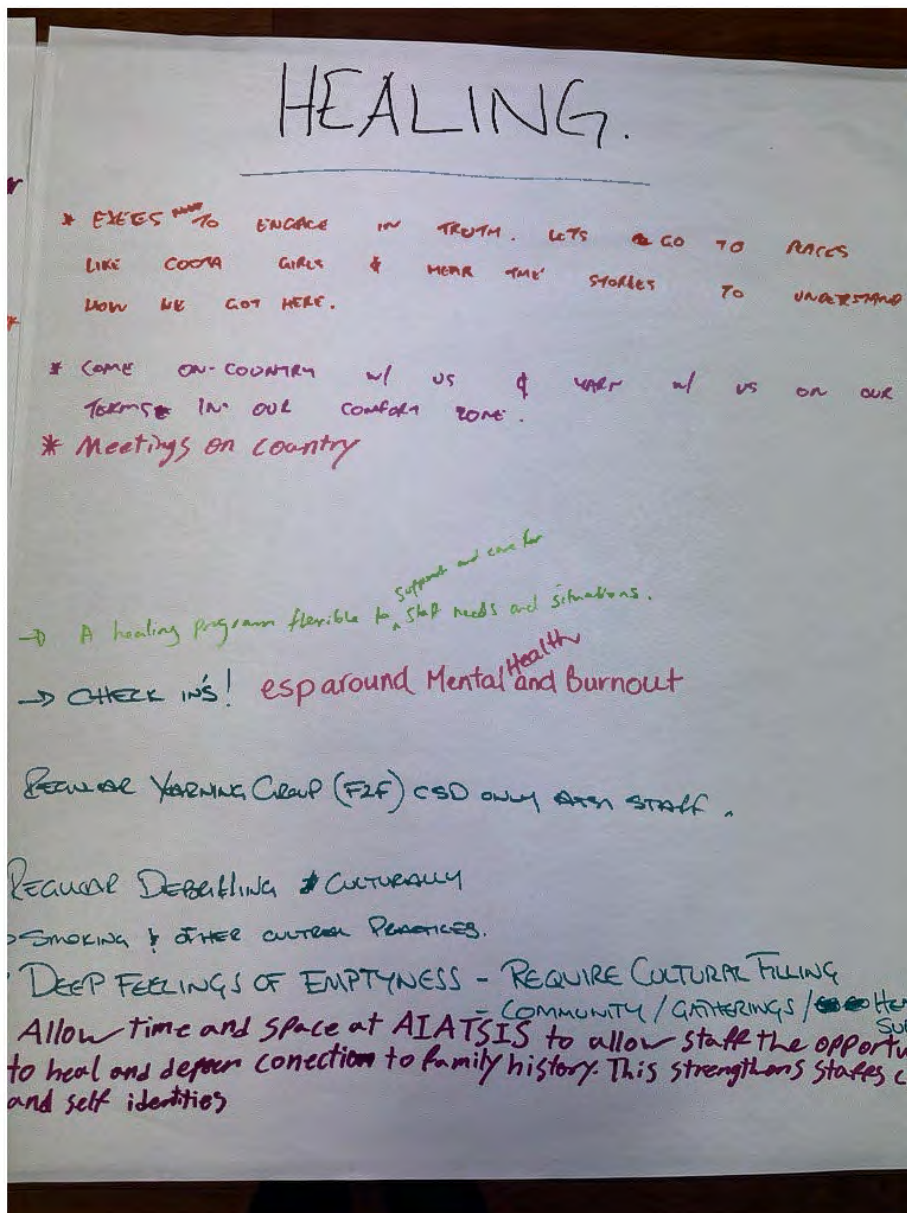 HEALING.
* EXECS TO ENGAGE IN TRUTH. LETS GO TO PLACES
LIKE COOTA GIRLS & HEAR THE STORIES TO UNDERSTAND
HOW WE GOT HERE.
* COME ON-COUNTRY w/ US & YARN w/ US ON OUR
TERMS IN OUR COMFORT ZONE.
* Meetings on country
support and care for
→ A healing program flexible to ^ staff needs and situations.
Health
→ CHECK IN'S! esp around Mental and Burnout
REGULAR YARNING GROUP (F2F) CSD ONLY ATSI STAFF.
REGULAR DEBRIEFING CULTURALLY
SMOKING & OTHER CULTURAL PRACTICES.
DEEP FEELINGS OF EMPTYNESS - REQUIRE CULTURAL FILLING
- COMMUNITY / GATHERINGS /
Allow time and space at AIATSIS to allow staff the
to heal and deepen conection to family history. This strengthens staffs
and self identities